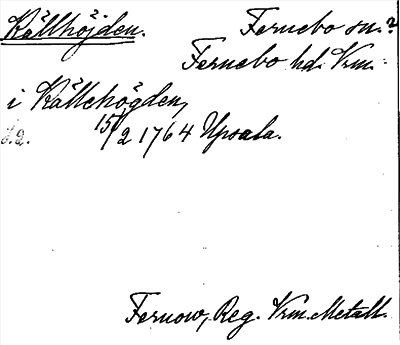 Källhöjden. Fernebo sn.?
Fernebo hd. Vrm.
i Källehögden,
s.a. 15/2 1764 Upsala.
Fernow, Reg. Vrm. Metall.